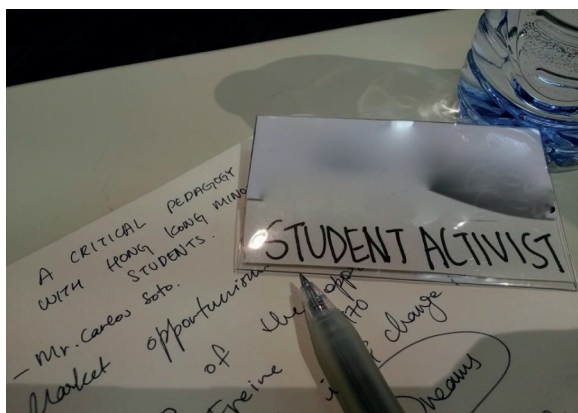 STUDENT ACTIVIST
A CRITICAL PEDAGOGY
WITH HONG KONG MINO
STUDENTS.
- Mr. Carlos Soto.
Market opportunism
of the opp
Freire 170
is change,
Dreams